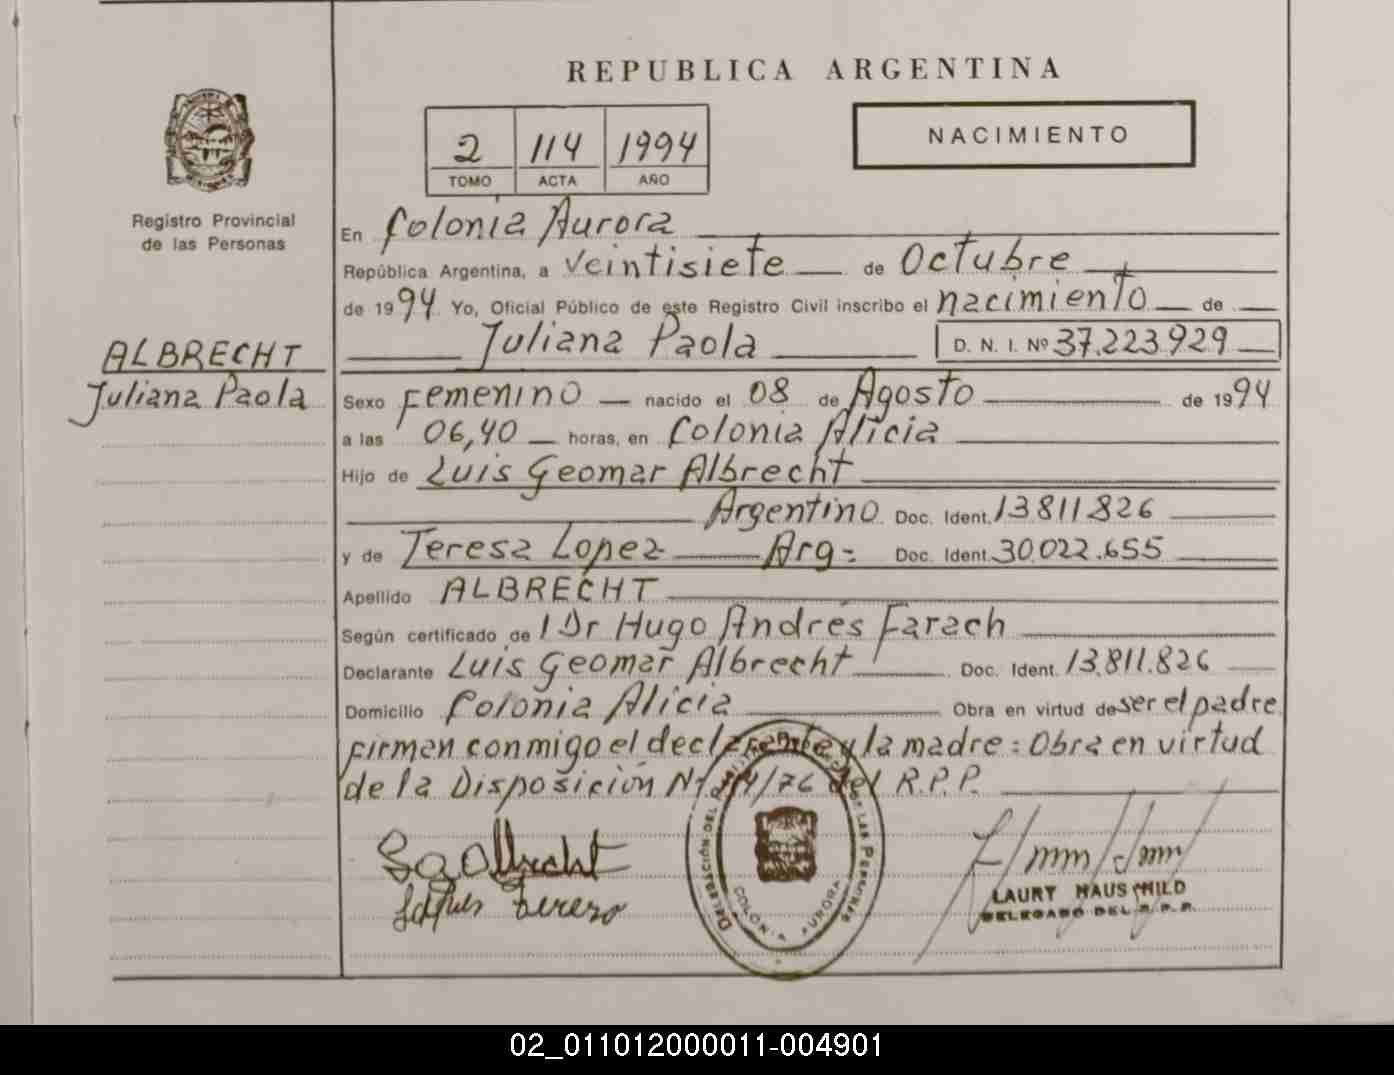 REPUBLICA ARGENTINA
2 114 1994
TOMO ACTA AÑO
NACIMIENTO
Registro Provincial
de las Personas
ALBRECHT
Juliana Paola
En Colonia Aurora
República Argentina, a veintisiete de Octubre
de 1994 Yo, Oficial Público de este Registro Civil inscribo el nacimiento de
Juliana Paola D. N. I. Nº 37.223.929
Sexo Femenino nacido el 08 de Agosto de 1994
a las 06,40 horas, en Colonia Alicia
Hijo de Luis Geomar Albrecht
Argentino Doc. Ident. 13811826
y de Teresa Lopez Arg= Doc. Ident. 30.022.655
Apellido ALBRECHT
Según certificado de l Dr Hugo Andrés Farach
Declarante Luis Geomar Albrecht Doc. Ident. 13.811.826
Domicilio Colonia Alicia Obra en virtud de ser el padre
firman conmigo el declarante y la madre: Obra en virtud
de la Disposición /76 del R.P.P.
DELEGACIÓN DEL REGISTRO DE LAS PERSONAS
COLONIA AURORA
LAURY HAUSCHILD
DELEGADO DEL R.P.P.
02_011012000011-004901